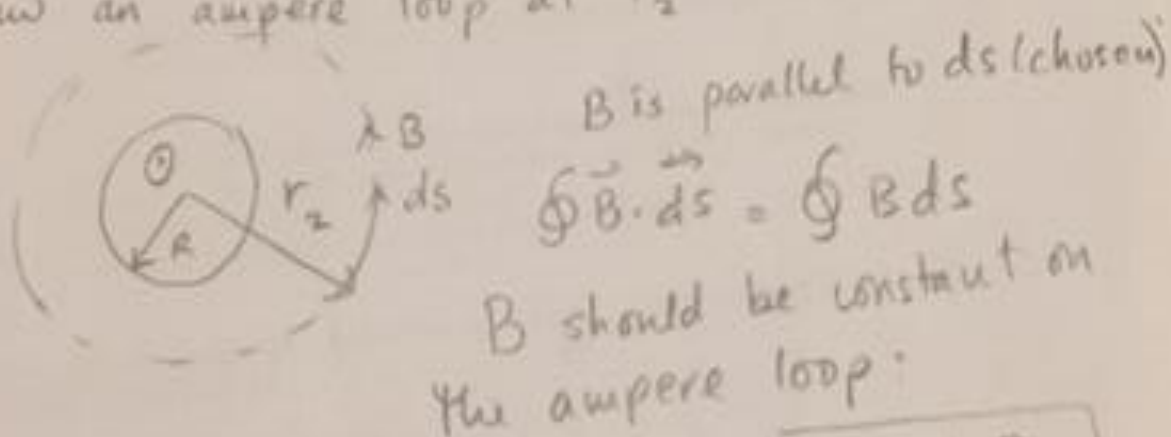 an ampere loop at r₂
B is parallel to ds (chosen)
λ B
ds
r₂
R
∮ B⃗ · ds⃗ = ∮ B ds
B should be constant on
the ampere loop.